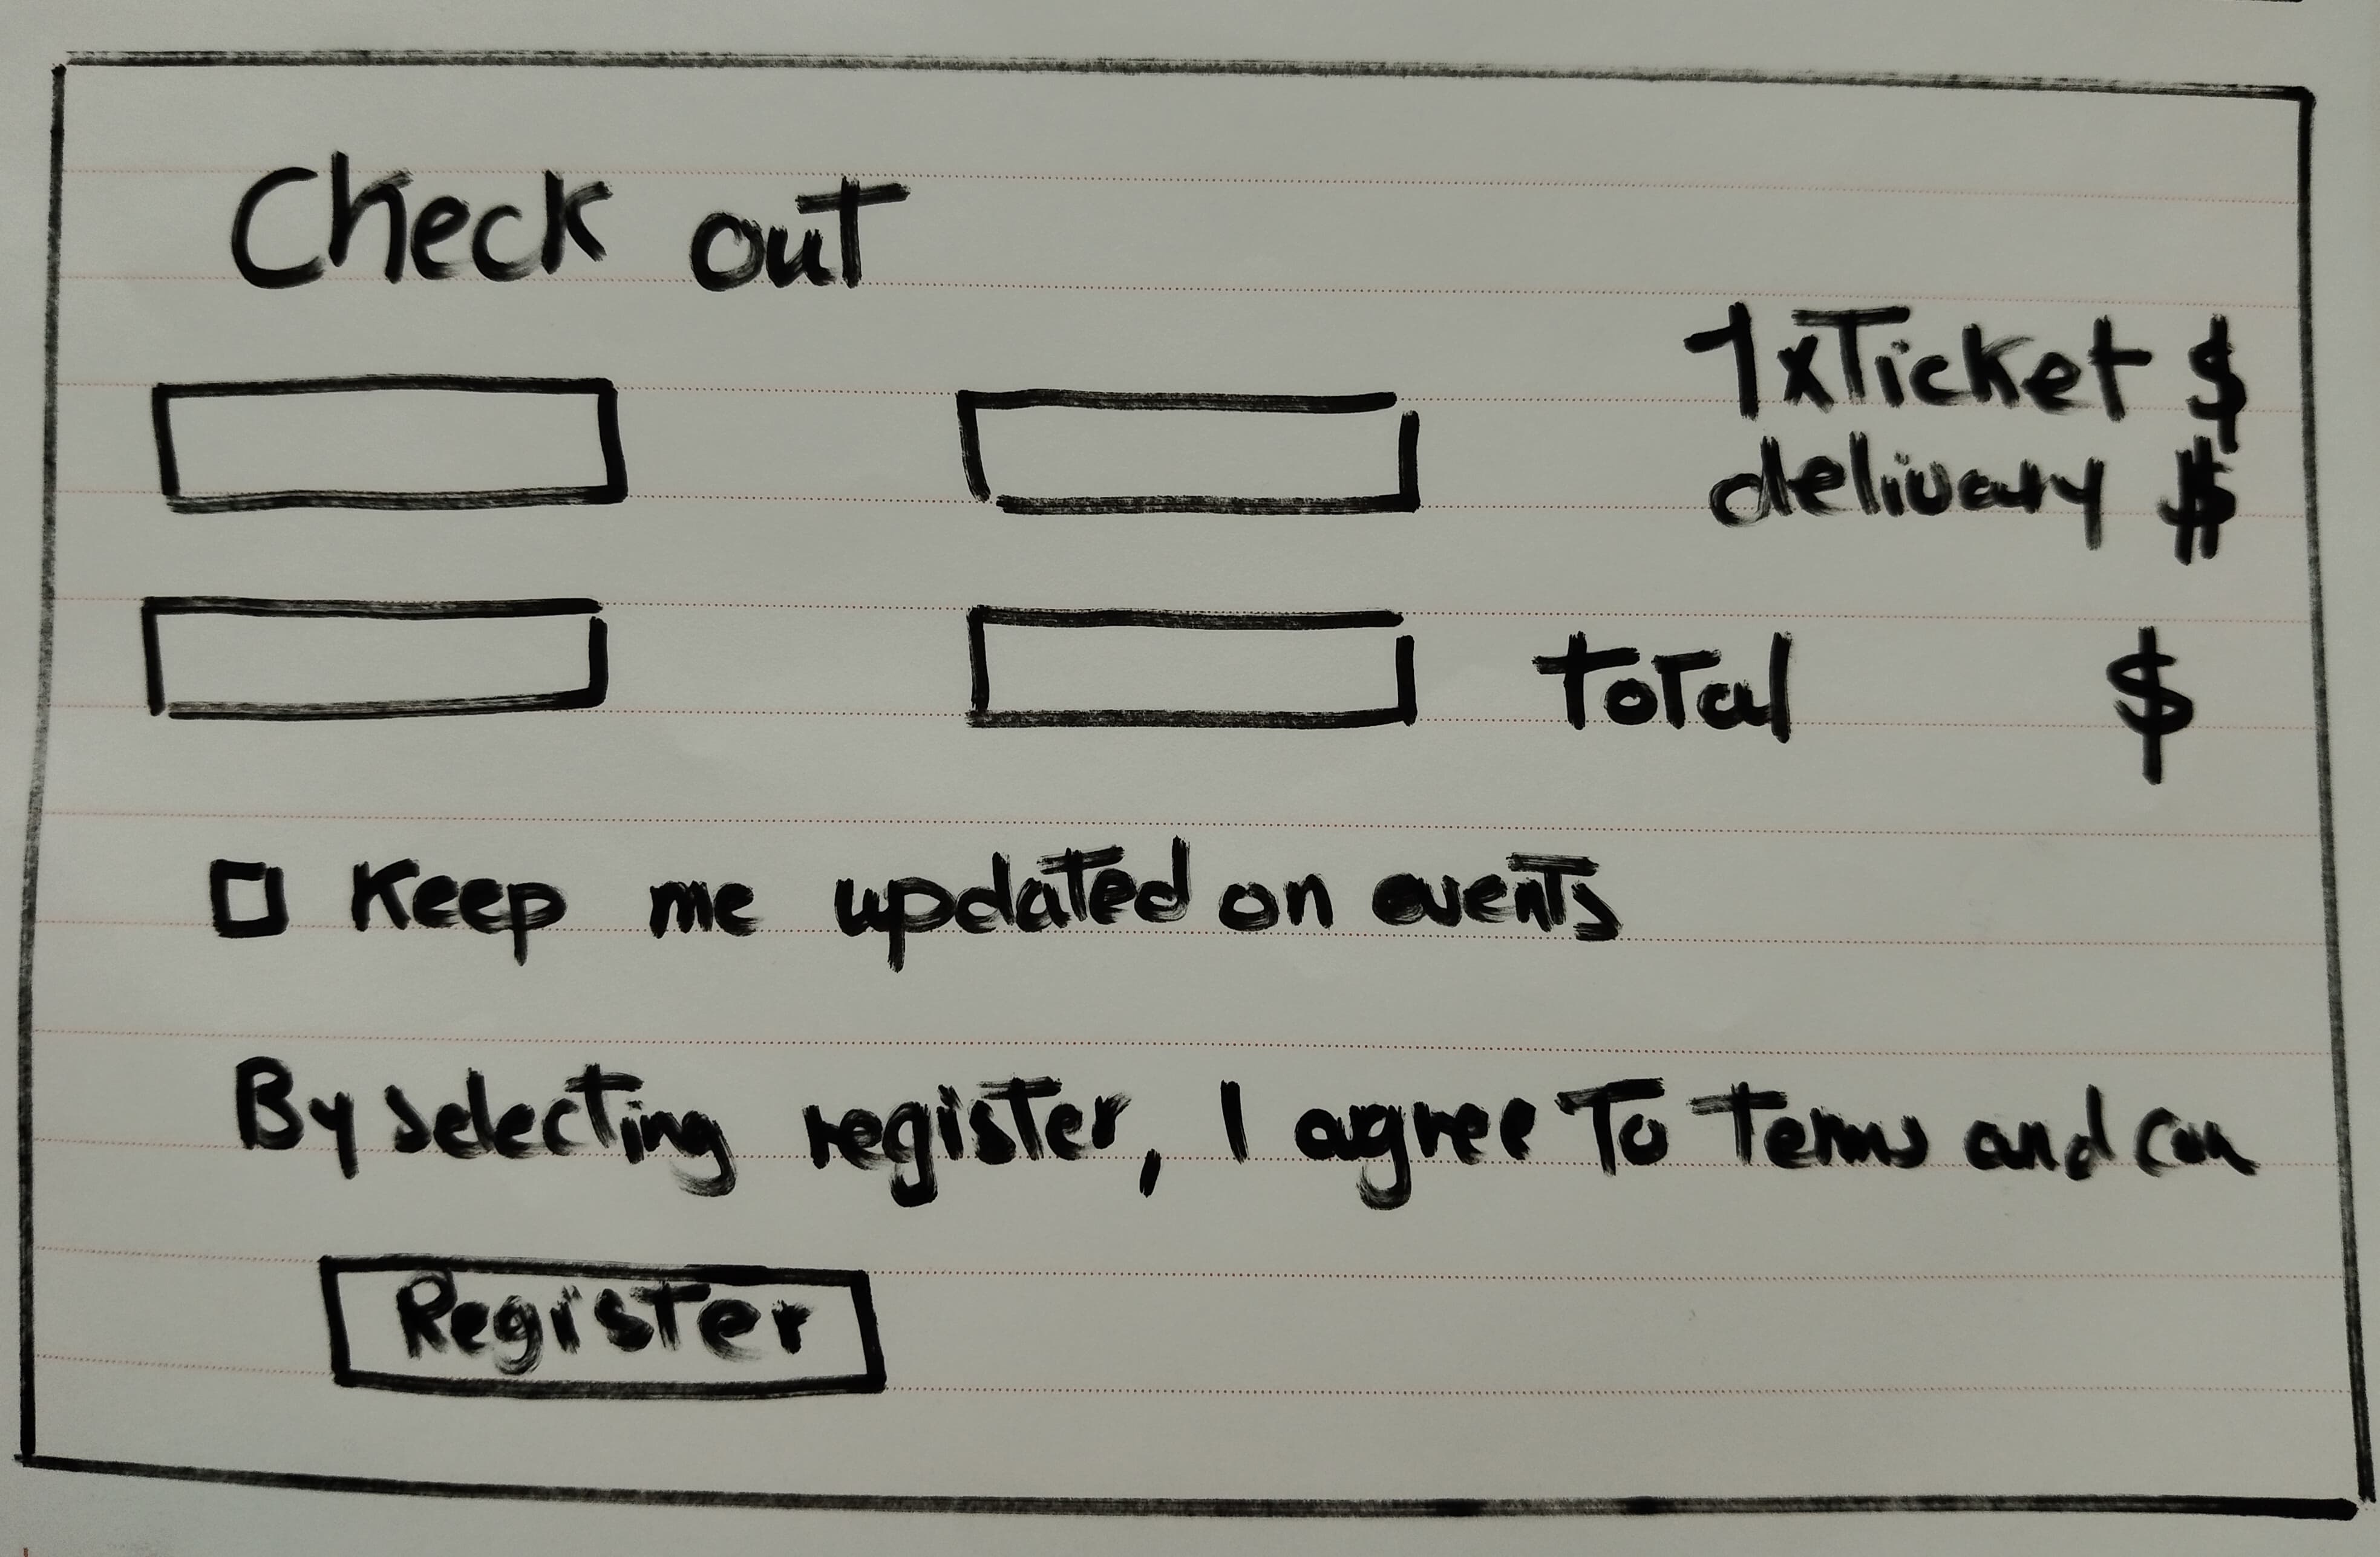 Check out
1xTicket $
delivary $
Total $
Keep me updated on events
By selecting register, I agree To Terms and con
Register